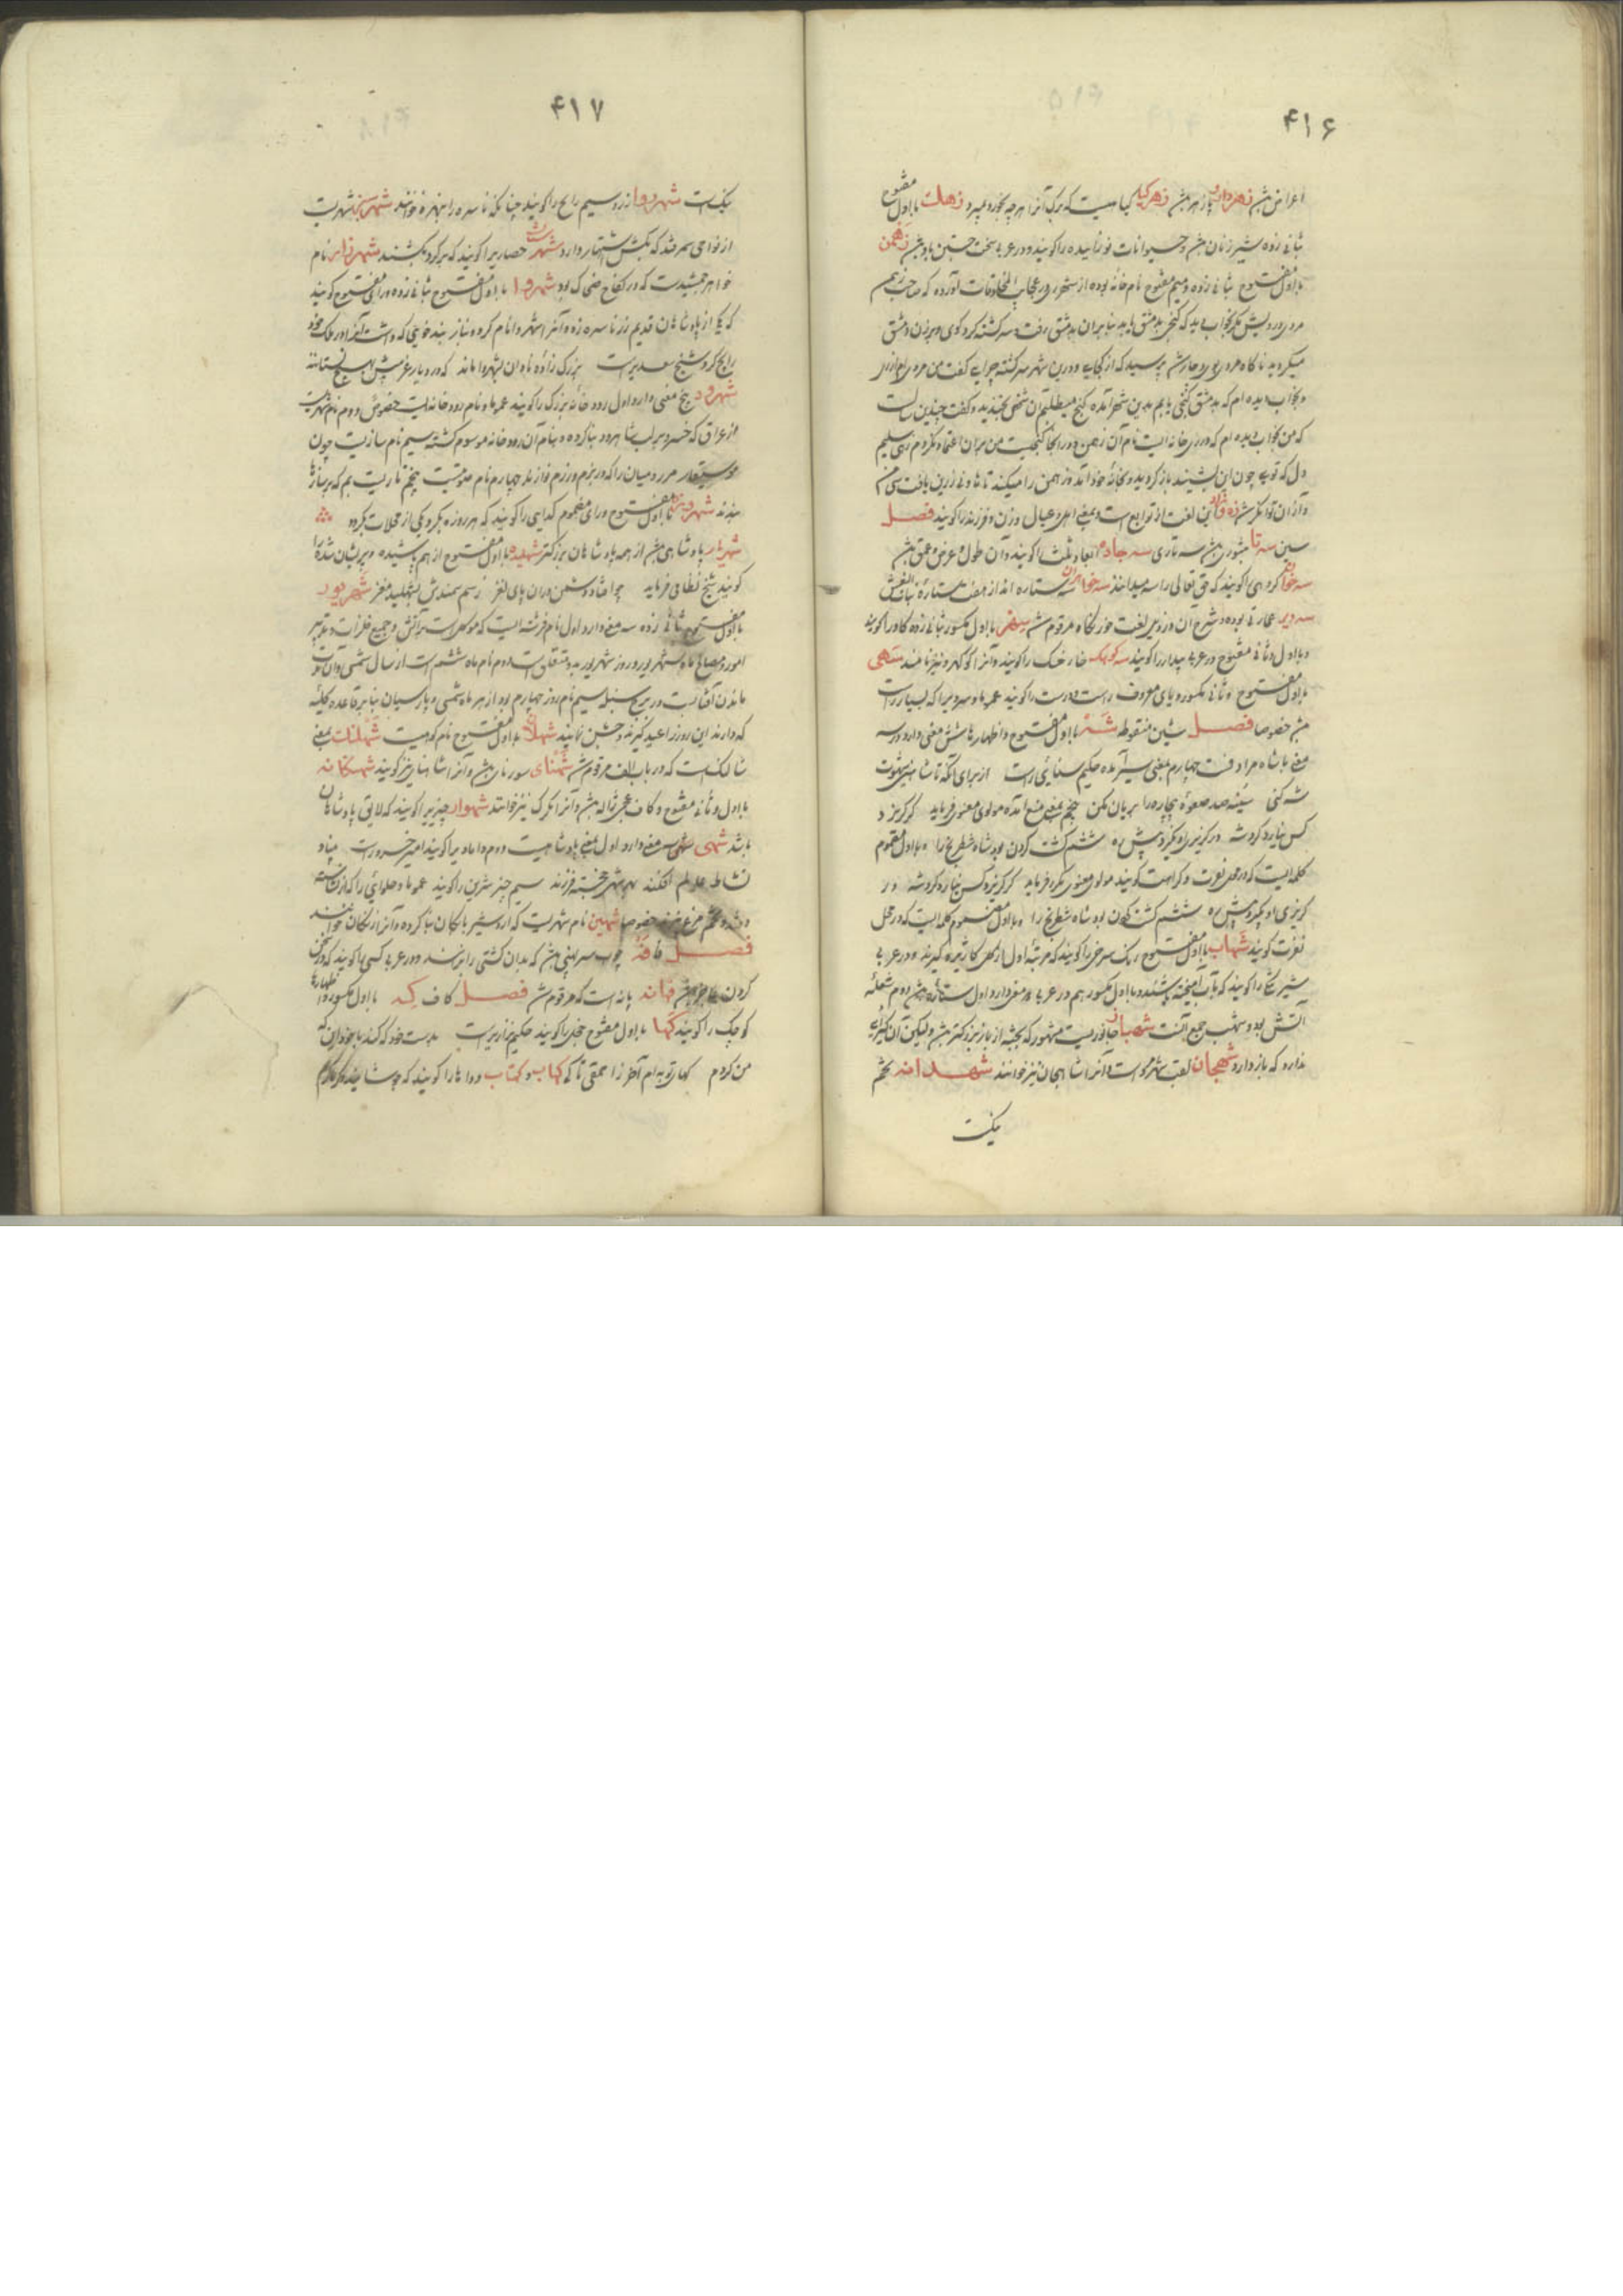 ۴۱۶
اعراض زهردارو پازهر زهر گیا گیاهیست که برگ آنرا هر چه بخورد بمیرد زهک با اول مفتوح
بثانی زده شیر زنان و حیوانات نوزاییده را گویند و در عربی سخت جستن باد زهمن
با اول مفتوح بثانی زده و میم مفتوح نام خانه بوده از شهر ری در عجایب المخلوقات آورده که صاحب زهم
مردی درویش مگر بخواب دید که گنجی بدمشق یابد بنابران بدمشق رفت و سرگشته گرد کوی و برزن دمشق
میگردید ناگاه مردی پرسید که از کجایی و درین شهر سرگشته چرایی گفت من مردی ام از ری
و بخواب دیده ام که بدمشق گنجی یابم بدین شهر آمده گنج میطلبم آن شخص بخندید و گفت چندین سالست
که من بخواب دیده ام که در ری خانه ایست نام آن زهمن و در آنجا گنجیست من بران اعتماد نکردم زهی سلیم
دل که تویی چون این بشنید باز گردید و بخانه خود آمد و زهمن را میکند تا
و از ان توانگر شد زه و زاد این لغت از توابع است بمعنی اهل و عیال و زن و فرزند را گویند فصل
سین سه تا سه تاری سه جاده ابعاد ثلثه را گویند و آن طول و عرض و عمق
سه خوان گروهی را گویند که حق تعالی را سه میدانند سه خواهران سه ستاره اند از هفت ستاره بنات النعش
سه دیر عمارتی بوده و شرح آن در ذیل لغت خورنگاه مرقوم شد سهر با اول مکسور بثانی زده گاو را گویند
و با اول و ثانی مفتوح در عربی بیدار را گویند سه کوهک خار خسک را گویند و آنرا نیز نامند سهی
با اول مفتوح و ثانی مکسور و یای معروف راست و درست را گویند عموما و سرو را که بسیار راست
خصوصا فصل شین منقوطه شه با اول مفتوح و اظهار ها شش معنی دارد در سه
معنی با شاه مرادفست چهارم بمعنی حکیم سنایی راست از برای آنکه تا شاهین شهوت
شه کنی سینه صد صعوه بیچاره را بریان مکن پنجم بمعنی منع آمده مولوی معنوی فرماید گر گریزد
کس نیارد کرد شه ور گریزی او بگیرد پیش ره ششم کشت کردن بود شاه شطرنج را و با اول مضموم
کلمه ایست که در محل نفرت و کراهت گویند مولوی معنوی نظم فرماید گر گریزد کس نیارد کرد شه ور
گریزی او بگیرد پیش ره ششم کشت کردن بود شاه شطرنج را و با اول مضموم کلمه ایست که در محل
نفرت گویند شهاب با اول مفتوح رنگ سرخی را گویند که مرتبه اول از گل کاژیره گیرند و در عربی
شیر تنگ را گویند که بآب آمیخته باشند و با اول مکسور هم در عربی دو معنی دارد اول ستاره دوم شعله
آتش بود و شهب جمع آنست شهباز جانوریست مشهور که بجثه از باز بزرگتر و لیکن آن گیرایی
ندارد که باز دارد شهجان لقب شهر مرو است و آنرا شاهجان نیز خوانند شهدانه تخم
بنگست
۴۱۷
بنگست شهرروا زر و سیم رایج را گویند چنانکه ناسره را نبهره خوانند شهر سبز شهریست
از نواحی سمرقند که بکش اشتهار دارد شهر بند حصاریرا گویند که بر گرد بکشند شهرناز نام
خواهر جمشیدست که در نکاح ضحاک بود شهروا با اول مفتوح بثانی زده و رای مفتوح گویند
که یکی از پادشاهان قدیم زر ناسره زده و آنرا شهروا نام کرده بنا بر تند خویی که داشت آنرا در ملک خود
رایج کرد شیخ سعدی راست بزرگ زاده نادان بشهروا ماند که در دیار غریبش بهیچ نستانند
شهرود پنج معنی دارد اول رودخانه بزرگ را گویند عموما و نام رودخانه ایست خصوص دوم نام شهریست
از عراق که خسرو بر لب شاهرود بنا کرده و بنام آن رودخانه موسوم گشته سیم نام سازیست چون
موسیقار مر رومیان را که در بزم و رزم نوازند چهارم نام صوتیست پنجم تاریست بم که بر سازها
بندند شهروده با اول مفتوح و رای مضموم گدایی را گویند که هر روزه بگرد یکی از محلات گردد
شهریار پادشاهی از همه پادشاهان بزرگتر شهلیده با اول مفتوح از هم پاشیده و پریشان شده را
گویند شیخ نظامی فرماید چو افتاد دشمن دران پای لغز ز سم سمندش بشهلید مغز شهریور
با اول مفتوح بثانی زده سه معنی دارد اول نام فرشته ایست که موکلست بر آتش و جمیع فلزات و تدبیر
امور و مصالح ماه شهریور و روز شهریور بدو متعلق است دوم نام ماه ششم است از سال شمسی و آن مدت
ماندن آفتابست در برج سنبله سیم نام روز چهارم بود از هر ماه شمسی و پارسیان بنابر قاعده کلیه
که دارند این روز را عید گیرند و جشن نمایند شهلان با اول مفتوح نام کوهیست شهلنک بمعنی
شالنگ است که در باب الف مرقوم شد شهنای سورنای و آنرا شاهنای نیز گویند شهنکانه
با اول و ثانی مفتوح و کاف عجمی ژاله و آنرا تگرگ نیز خوانند شهوار چیزیرا گویند که لایق پادشاهان
باشد شهی سه معنی دارد اول بمعنی پادشاهیست دوم دامادیرا گویند امیر خسرو راست بنیاد
نشاط عالم افکند بهر شهی خجسته فرزند سیم چیز شیرین را گویند عموما و حلوایی را که از نشاسته
و تخم مرغ پزند خصوصا شهین نام شهریست که اردشیر بابکان بنا کرده و آنرا زنگان خوانند
فصل فا فه چوب سرپهنی که بدان کشتی رانند و در عربی کسیرا گویند که در سخن
کردن عاجز فهانه پانه است که مرقوم شد فصل کاف که با اول مکسور و اظهار ها
کوچک را گویند کها با اول مفتوح خجل را گویند حکیم نزاری راست بدست خود که کند با خود این که
من کردم کهای توبه ام آخر زا حمقی تا کی کهاب و کهتاب دواها را گویند که جوشانیده گرما گرم